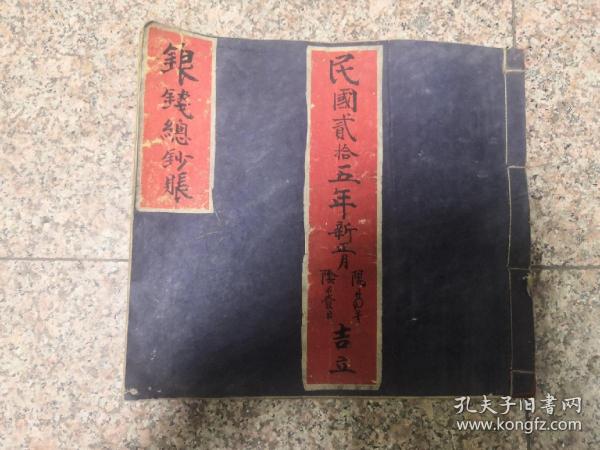 民國貳拾五年新正月
吉立
銀錢總鈔賬
孔夫子旧書网
www.kongfz.com